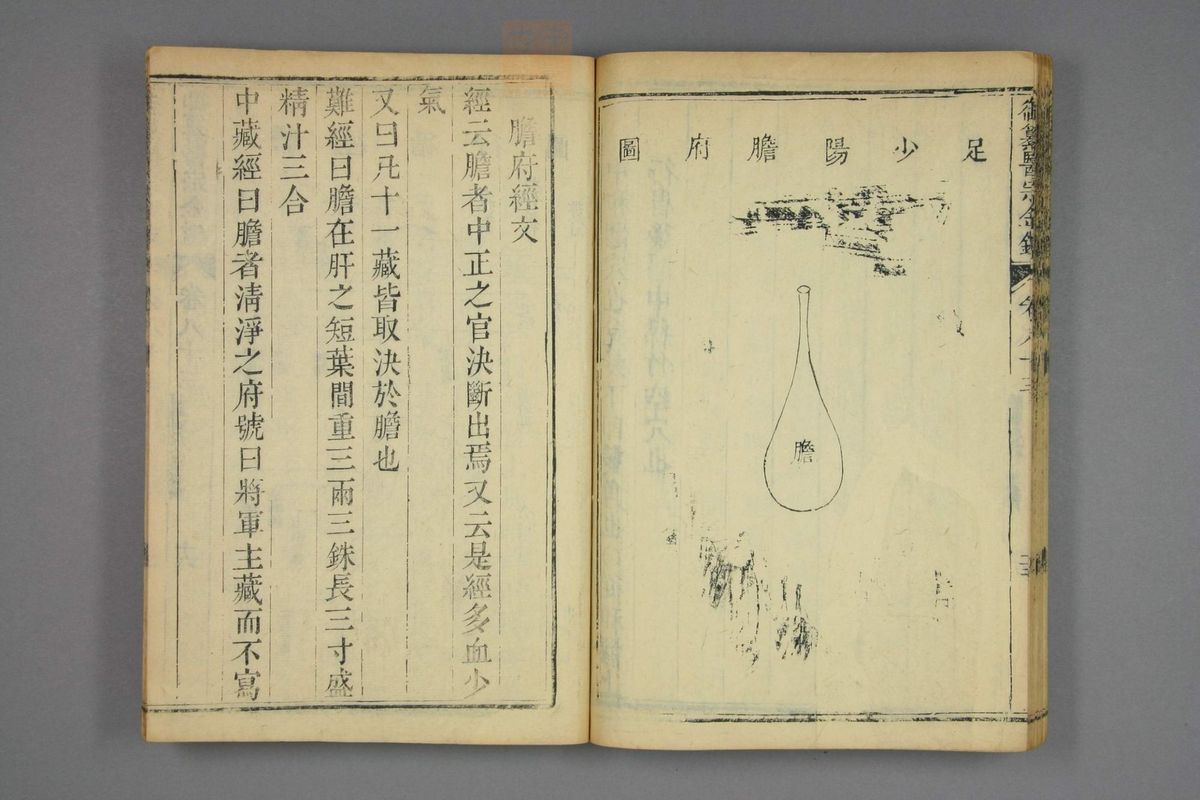 御纂醫宗金鑑
卷八十三
足少陽膽府圖
膽
膽府經文
經云膽者中正之官決斷出焉又云是經多血少
氣
又曰凡十一藏皆取決於膽也
難經曰膽在肝之短葉間重三兩三銖長三寸盛
精汁三合
中藏經曰膽者淸淨之府號曰將軍主藏而不寫